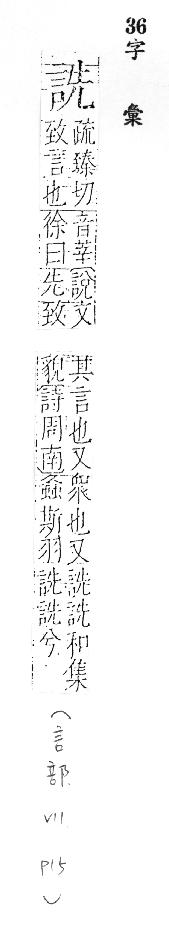 36
字彙
詵
疏臻切音莘說文
致言也徐曰先致
其言也又衆也又詵詵和集
貌詩周南螽斯羽詵詵兮
(言部 VII P15)